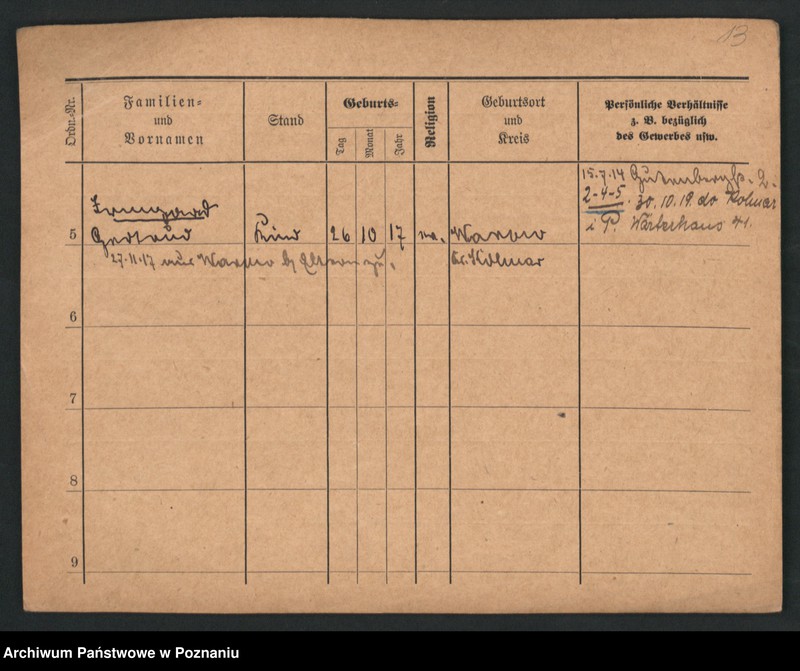 13
Ordn.-Nr.
Familien-
und
Vornamen
Stand
Geburts-
Tag
Monat
Jahr
Religion
Geburtsort
und
Kreis
Persönliche Verhältnisse
z. B. bezüglich
des Gewerbes usw.
15.7.14
2-4-5. 30.10.19. do Kolmar
i P. Wärterhaus 41.
Irmgard
5 Gertrud Kind 26 10 17
27.11.17 aus
Kr. Kolmar
6
7
8
9
Archiwum Państwowe w Poznaniu